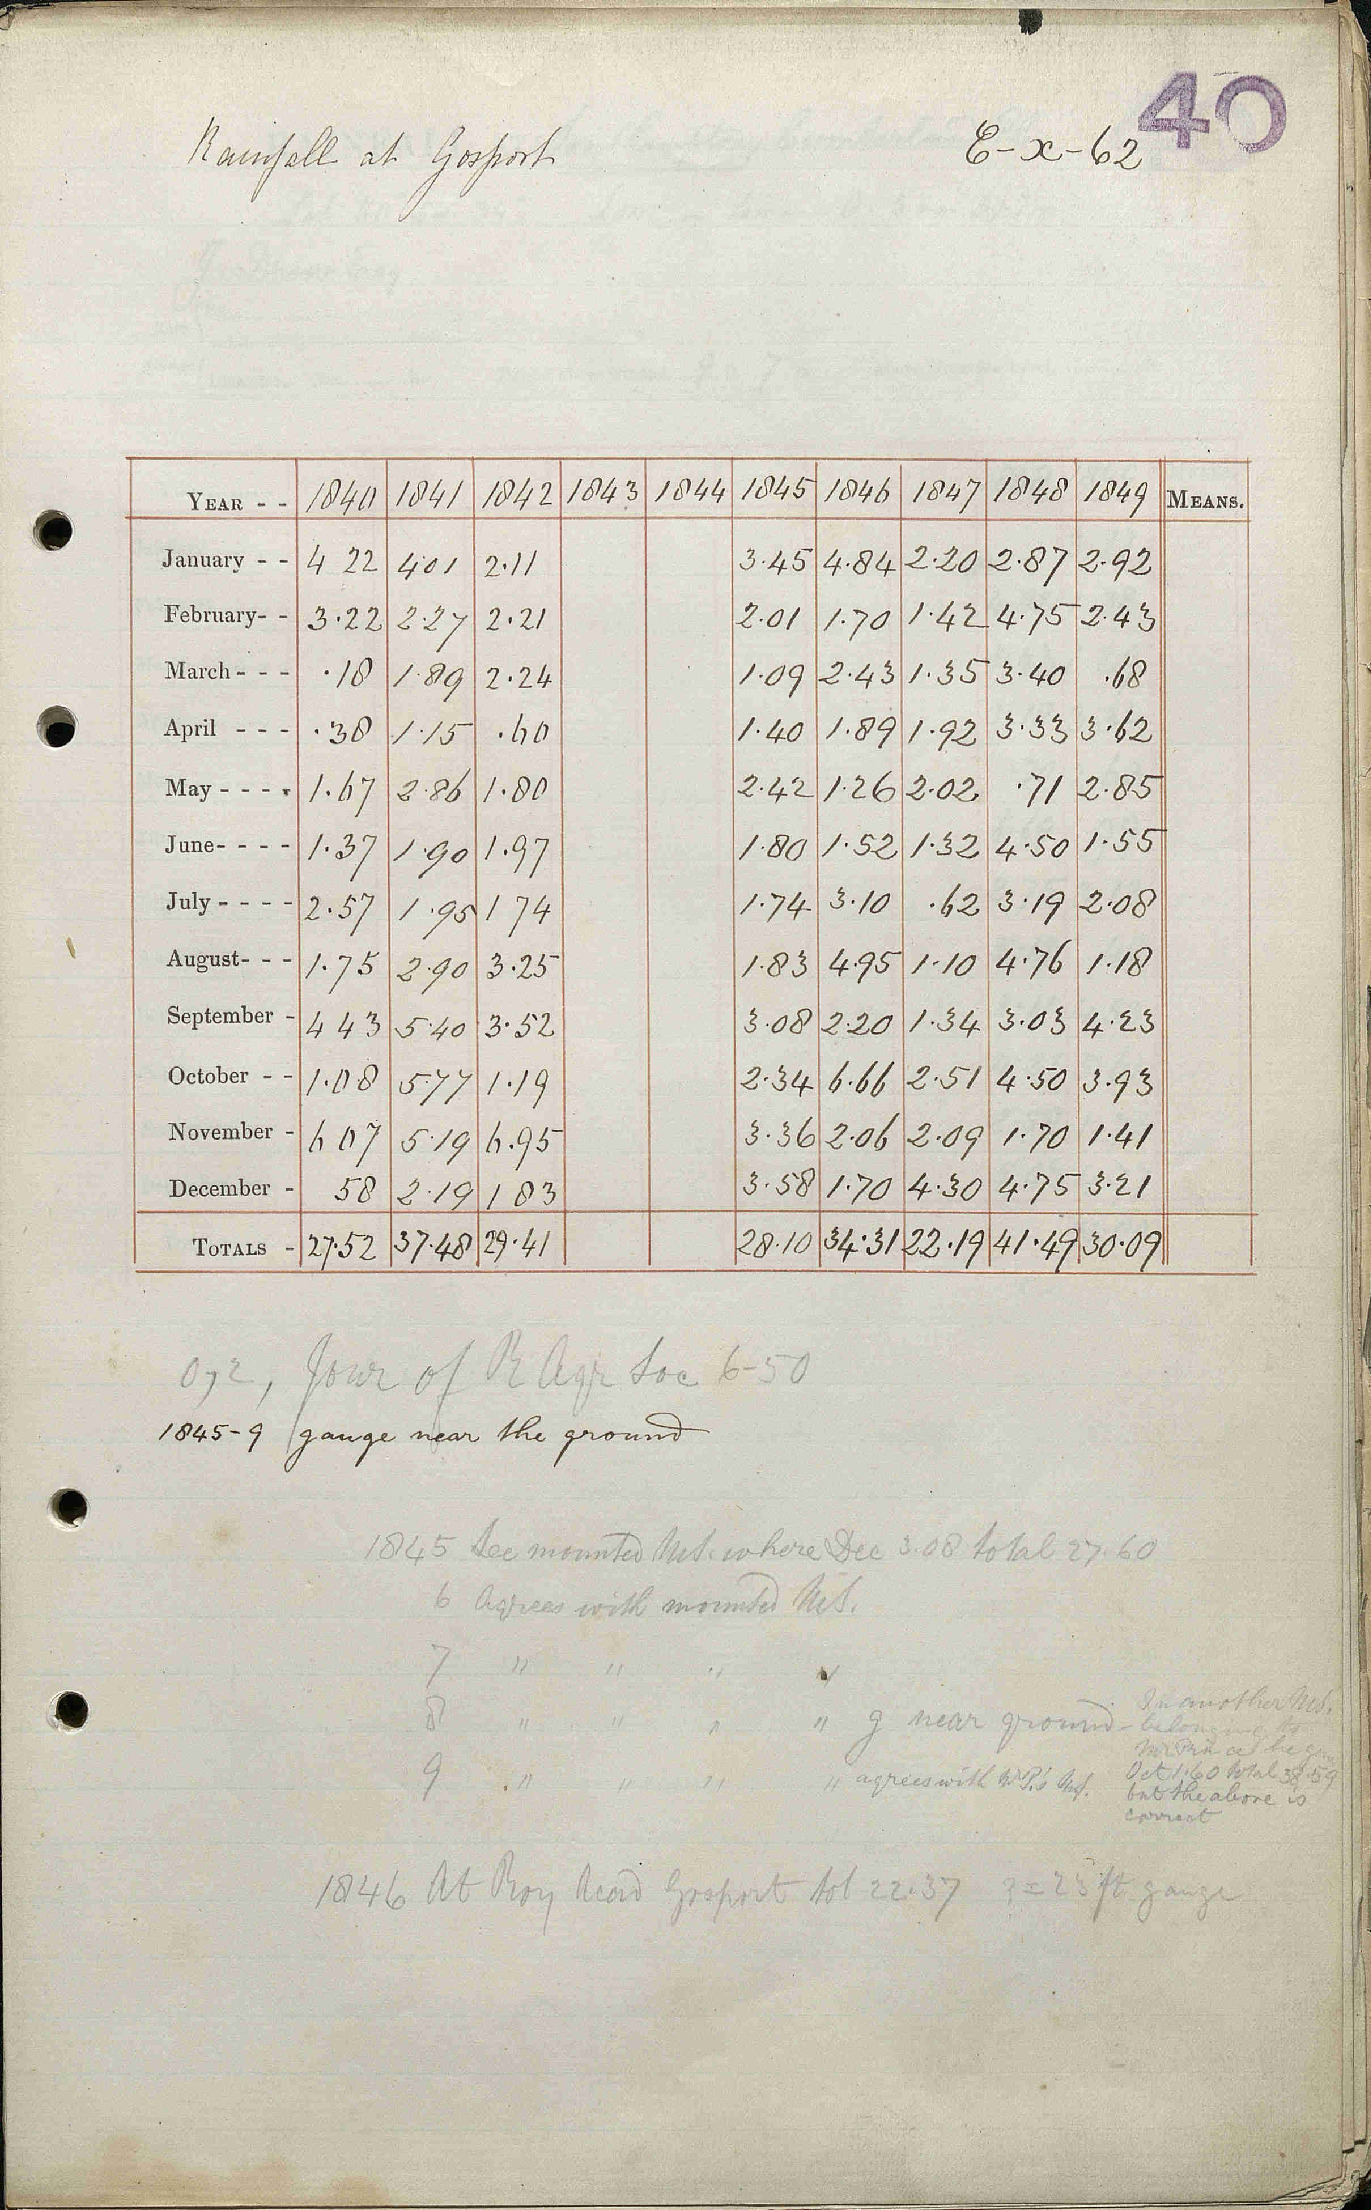 40
Rainfall at Gosport E-x-62
YEAR - - 1840 1841 1842 1843 1844 1845 1846 1847 1848 1849 MEANS.
January - - 4 22 4 01 2.11 3.45 4.84 2.20 2.87 2.92
February- - 3.22 2.27 2.21 2.01 1.70 1.42 4.75 2.43
March - - - .18 1.89 2.24 1.09 2.43 1.35 3.40 .68
April - - - .38 1.15 .60 1.40 1.89 1.92 3.33 3.62
May - - - - 1.67 2.86 1.80 2.42 1.26 2.02 .71 2.85
June- - - - 1.37 1.90 1.97 1.80 1.52 1.32 4.50 1.55
July - - - - 2.57 1.95 1 74 1.74 3.10 .62 3.19 2.08
August- - - 1.75 2.90 3.25 1.83 4.95 1.10 4.76 1.18
September - 4 43 5.40 3.52 3.08 2.20 1.34 3.03 4.23
October - - 1.08 5.77 1.19 2.34 6.66 2.51 4.50 3.93
November - 6 07 5.19 6.95 3.36 2.06 2.09 1.70 1.41
December - 58 2.19 1 83 3.58 1.70 4.30 4.75 3.21
TOTALS - 27.52 37.48 29.41 28.10 34.31 22.19 41.49 30.09
0,1,2, Jour of R Agr Soc 6-50
1845-9 gauge near the ground
1845 See mounted MS. where Dec 3.08 total 27.60
6 Agrees with mounted MS.
7 " " " "
8 " " " " g near ground - In another MS.
belonging to
9 " " " " agrees with Mr P.'s MS. Oct 1.60 total 38.59
but the above is
correct
1846 At Roy Acad Gosport tot 22.37 ? = 23 ft gauge